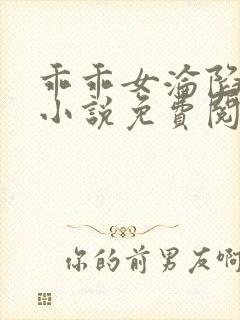 乖乖女淪陷
小說免費閱
你的前男友啊